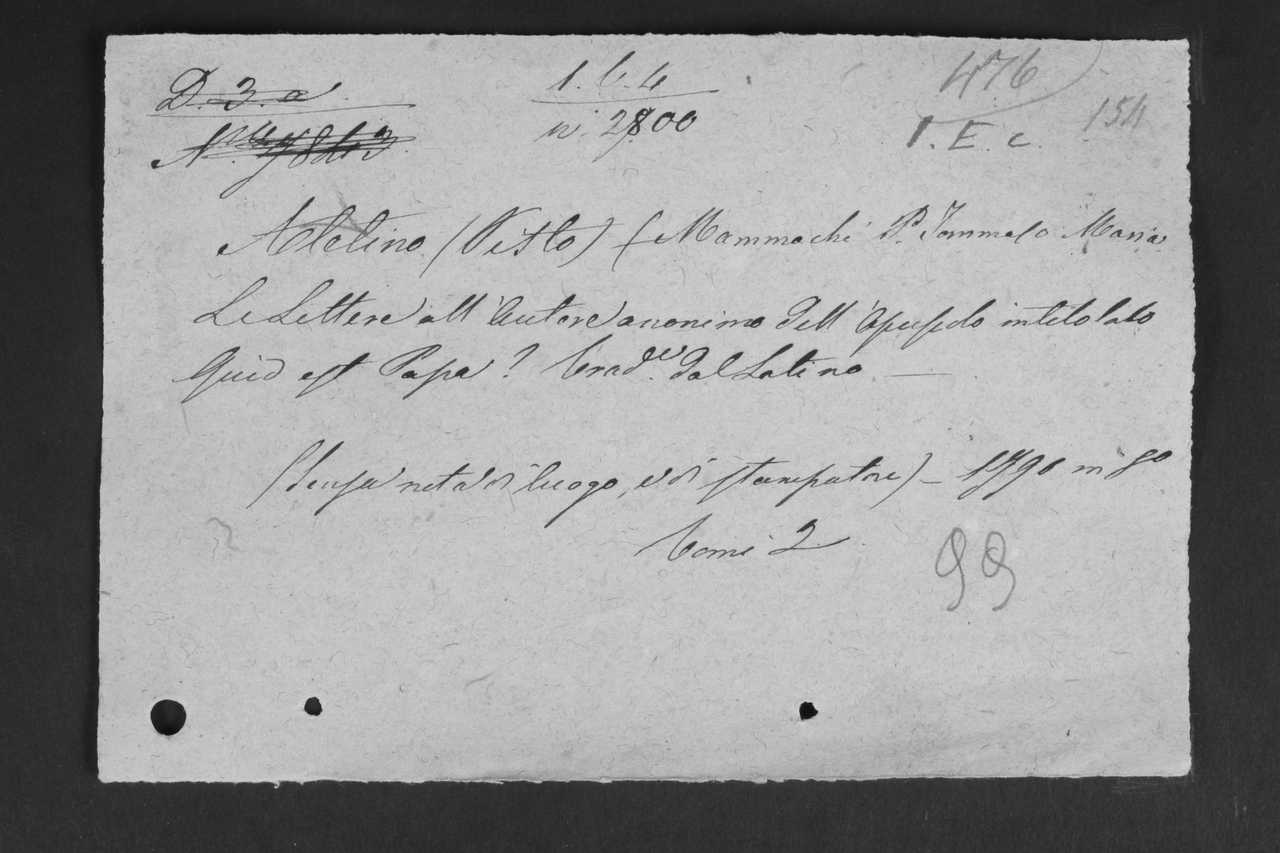 D. 3. a
1. C. 4
476
n. 2800
1. E. c.
154
Aletino (Pisto) (Mammachi P. Tommaso Maria
Le Lettere all'Autore anonimo dell'Opuscolo intitolato
Quid est Papa? Trad.e dal Latino —
(Senza nota di luogo, e di stampatore) – 1790 in 8°
Tomi 2
99